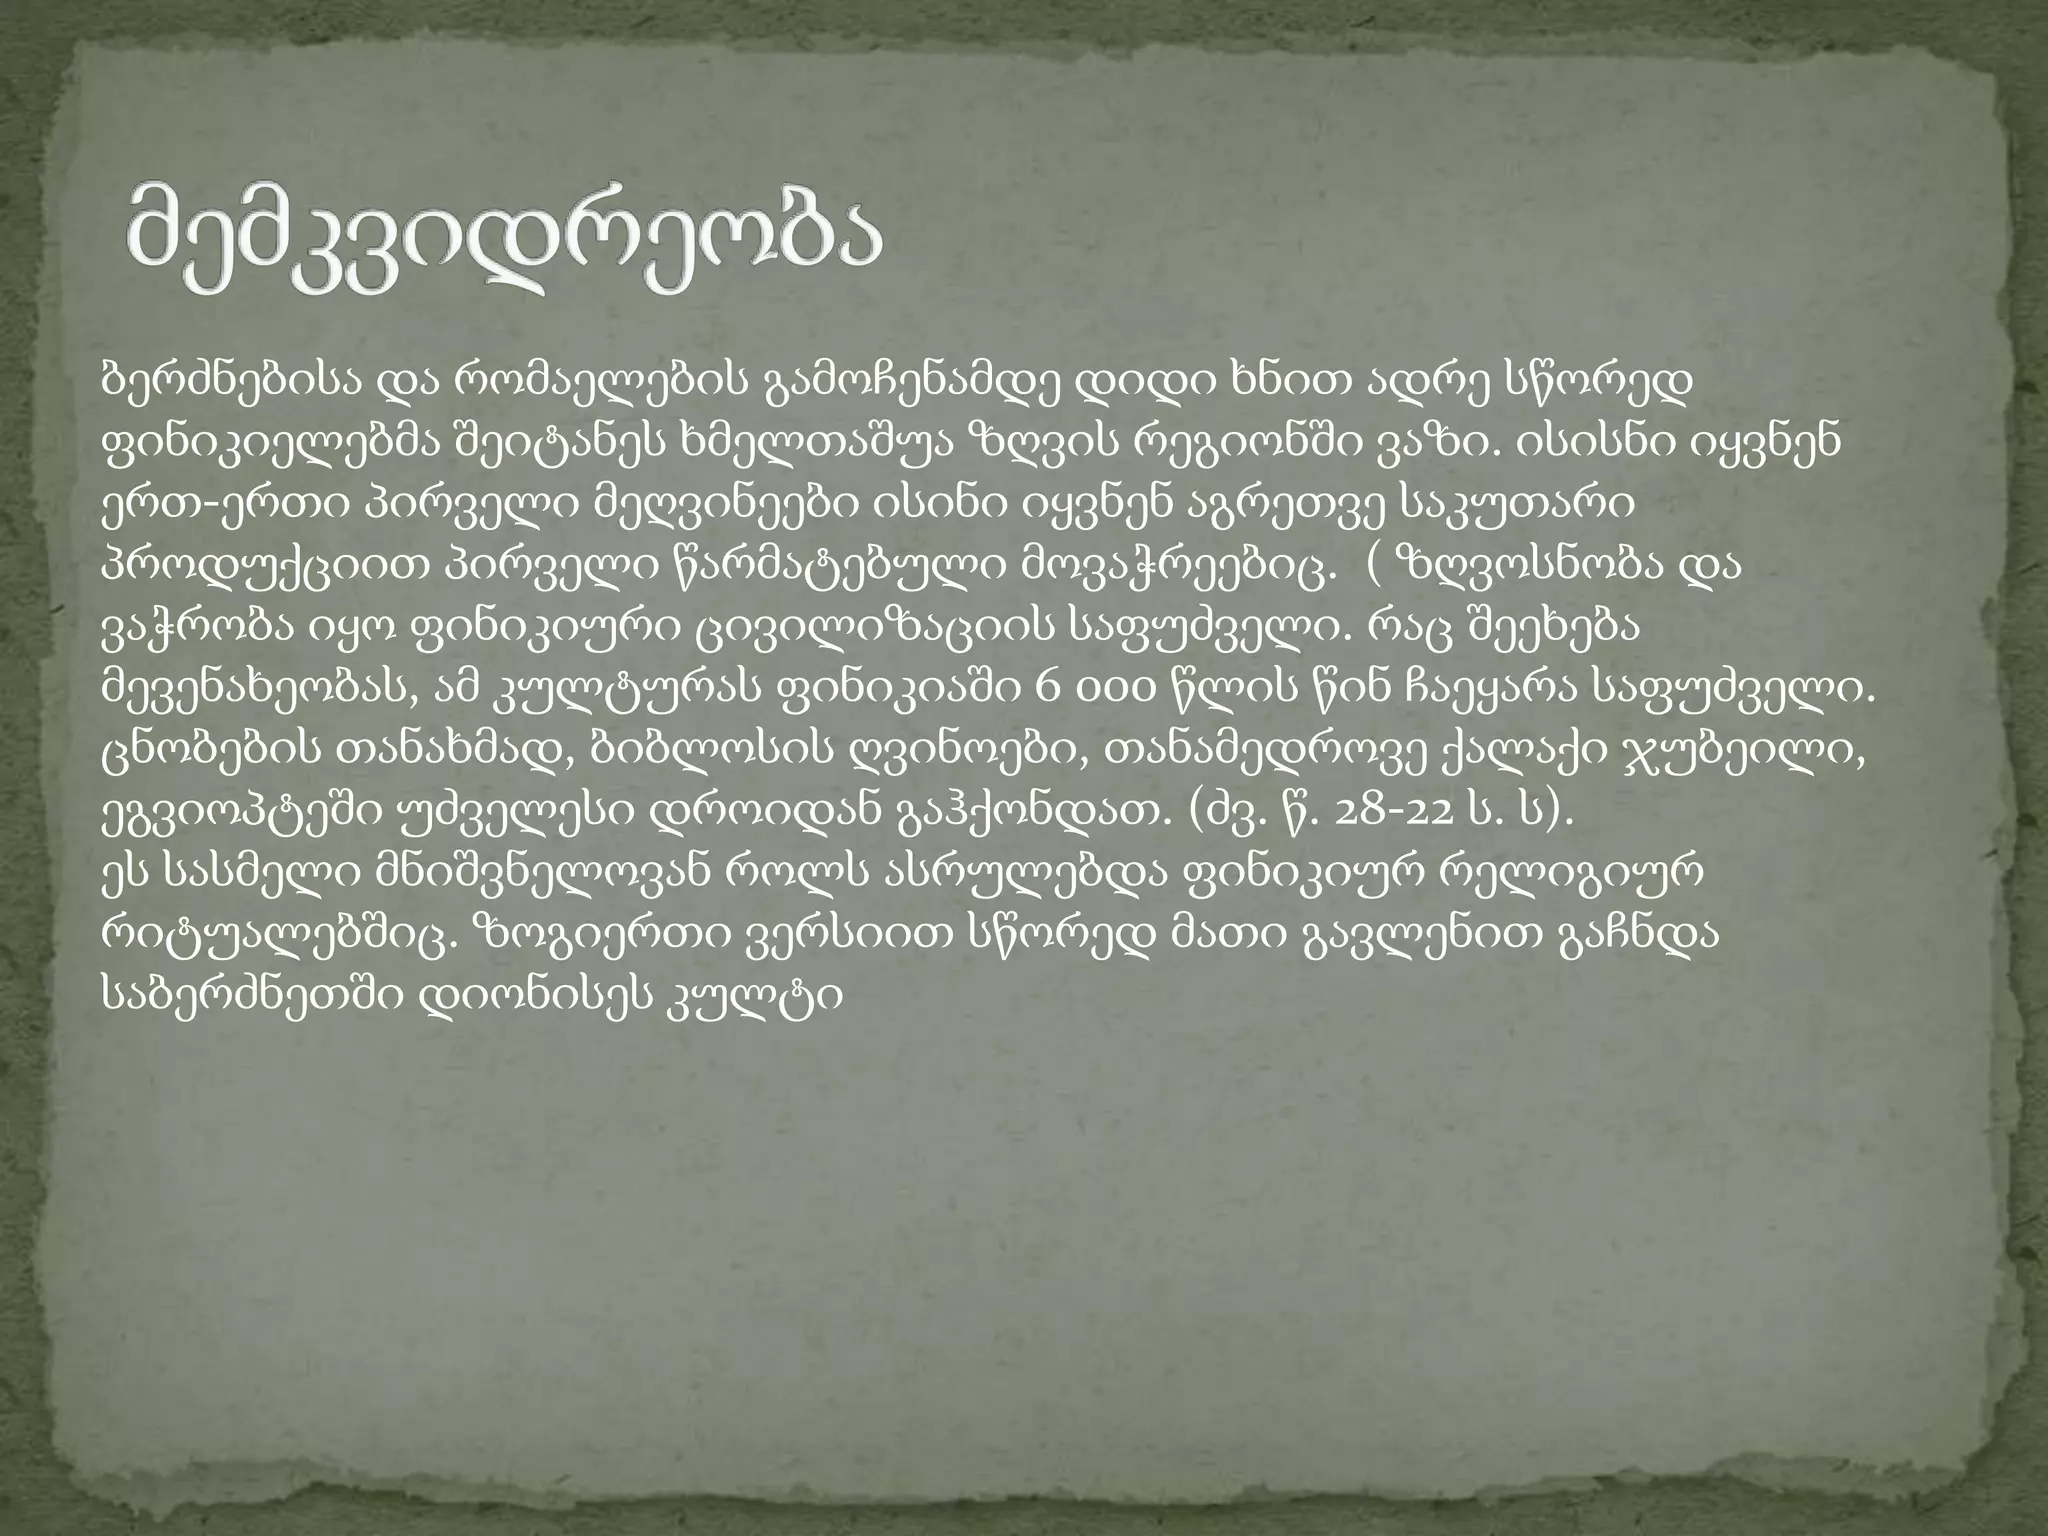 მემკვიდრეობა
ბერძნებისა და რომაელების გამოჩენამდე დიდი ხნით ადრე სწორედ
ფინიკიელებმა შეიტანეს ხმელთაშუა ზღვის რეგიონში ვაზი. ისისნი იყვნენ
ერთ-ერთი პირველი მეღვინეები ისინი იყვნენ აგრეთვე საკუთარი
პროდუქციით პირველი წარმატებული მოვაჭრეებიც.  ( ზღვოსნობა და
ვაჭრობა იყო ფინიკიური ცივილიზაციის საფუძველი. რაც შეეხება
მევენახეობას, ამ კულტურას ფინიკიაში 6 000 წლის წინ ჩაეყარა საფუძველი.
ცნობების თანახმად, ბიბლოსის ღვინოები, თანამედროვე ქალაქი ჯუბეილი,
ეგვიოპტეში უძველესი დროიდან გაჰქონდათ. (ძვ. წ. 28-22 ს. ს).
ეს სასმელი მნიშვნელოვან როლს ასრულებდა ფინიკიურ რელიგიურ
რიტუალებშიც. ზოგიერთი ვერსიით სწორედ მათი გავლენით გაჩნდა
საბერძნეთში დიონისეს კულტი